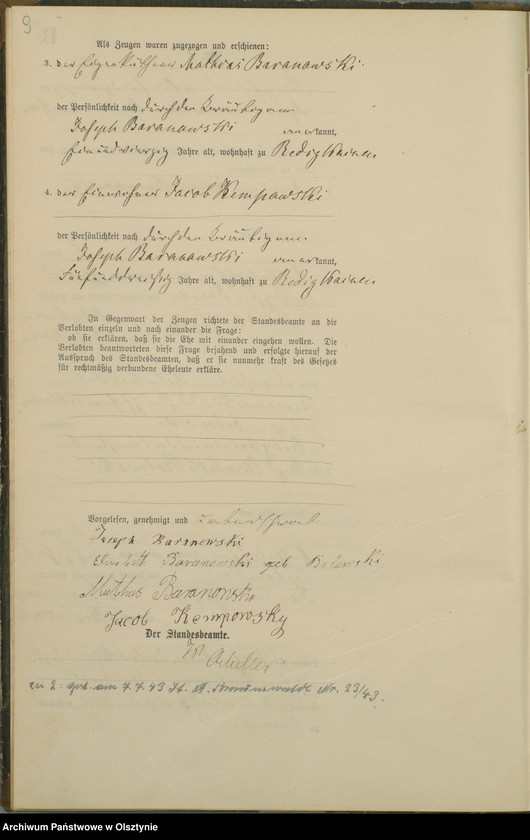 9
Als Zeugen waren zugezogen und erschienen:
3. der Eigenkäthner Mathias Baranowski
der Persönlichkeit nach durch den Bräutigam
Joseph Baranowski anerkannt,
einundvierzig Jahre alt, wohnhaft zu Redigkainen
4. der Einwohner Jacob Kempowski
der Persönlichkeit nach durch den Bräutigam
Joseph Baranowski anerkannt,
fünfunddreißig Jahre alt, wohnhaft zu Redigkainen
In Gegenwart der Zeugen richtete der Standesbeamte an die
Verlobten einzeln und nach einander die Frage:
ob sie erklären, daß sie die Ehe mit einander eingehen wollen. Die
Verlobten beantworteten diese Frage bejahend und erfolgte hierauf der
Ausspruch des Standesbeamten, daß er sie nunmehr kraft des Gesetzes
für rechtmäßig verbundene Eheleute erkläre.
Vorgelesen, genehmigt und unterschrieben
Joseph Baranowski
Baranowski geb
Baranowski
Jacob Kempowsky
Der Standesbeamte.
zu 2: gest. am 7.7.43 St. A. Nr. 23/43.
Archiwum Państwowe w Olsztynie